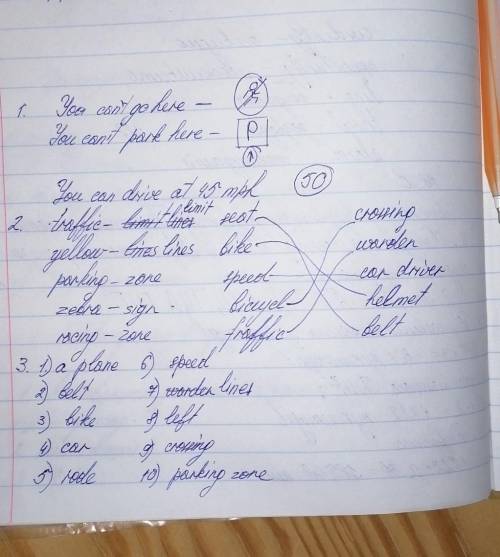 1. You can't go here —
You can't park here — P
You can drive at 45 mph 50
2. traffic - limit lines limit seat crossing
yellow - lines lines bike warden
parking - zone speed car driver
zebra - sign bicycle helmet
racing - zone traffic belt
3. 1) a plane 6) speed
2) belt 7) warden lines
3) bike 8) left
4) car 9) crossing
5) rode 10) parking zone